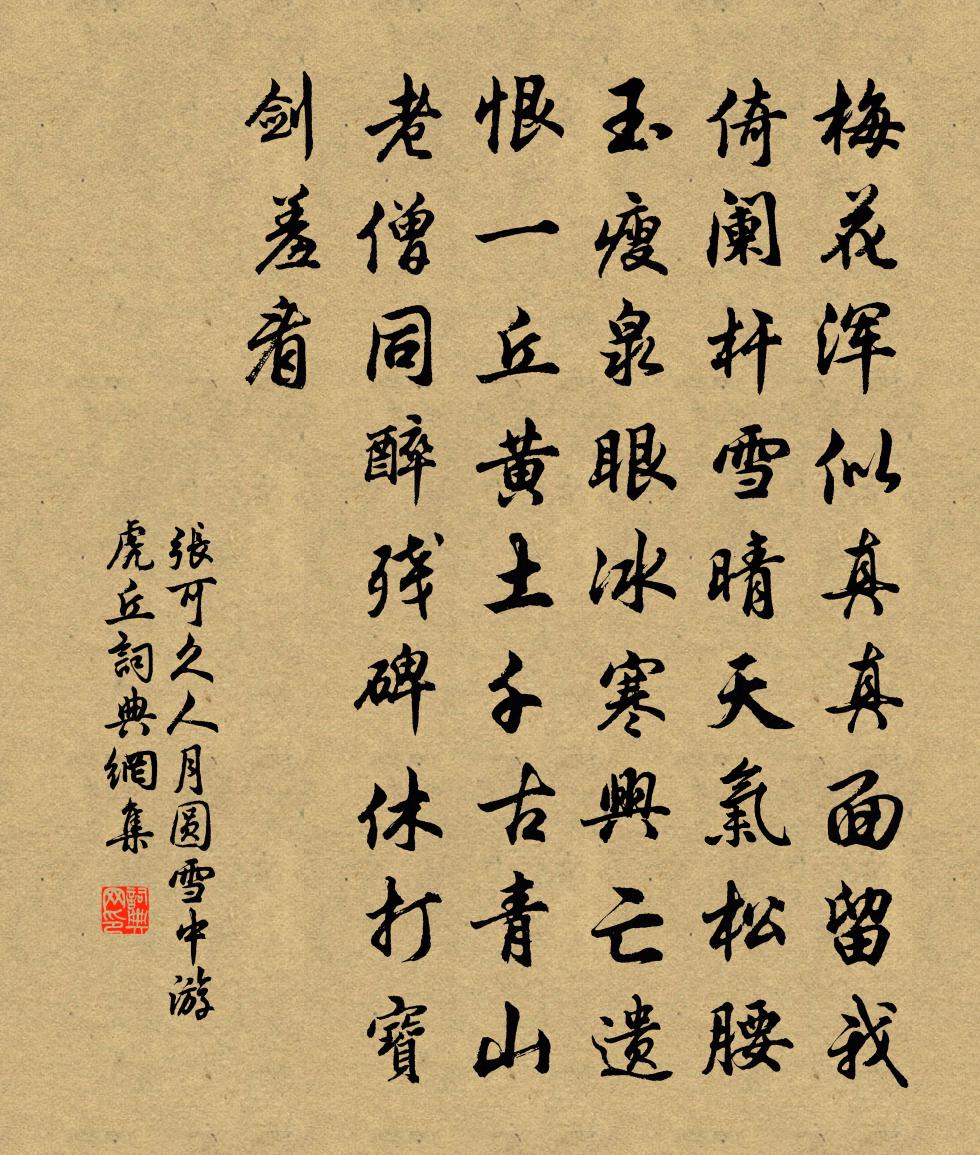 梅花浑似真真面留我
倚阑杆雪晴天氣松腰
玉瘦泉眼冰寒興亡遗
恨一丘黄土千古青山
老僧同醉残碑休打寶
剑羞看
張可久人月圆雪中游
虎丘詞典網集
詞典网印